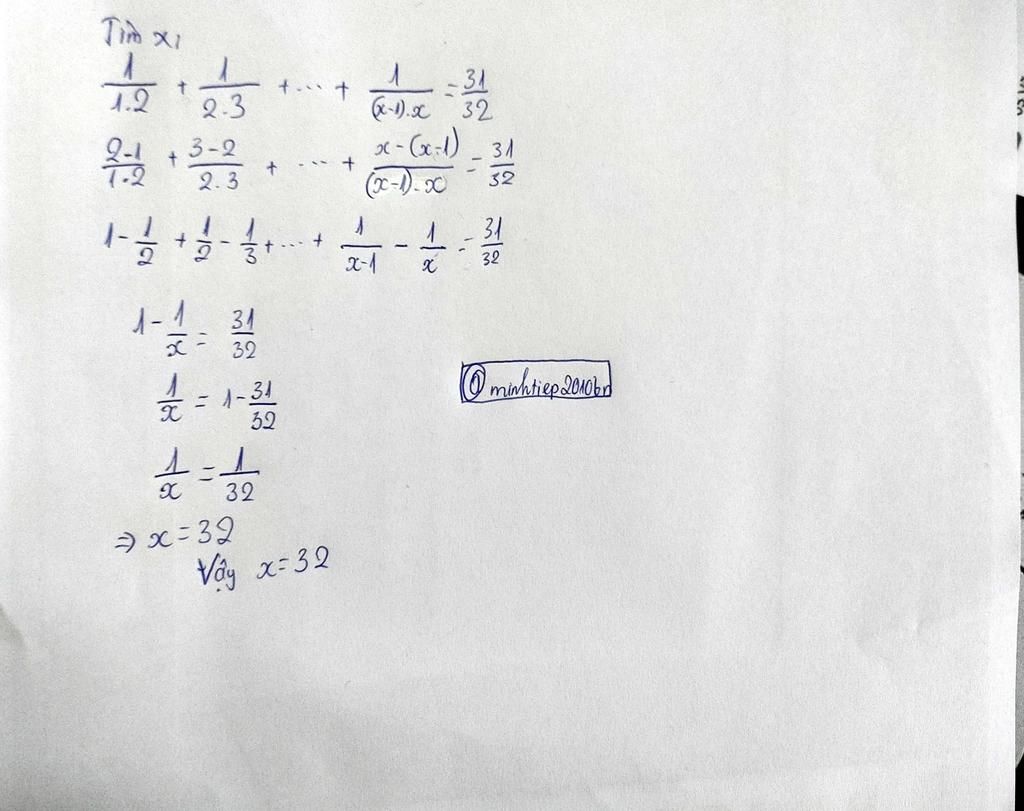 Tìm x,
1/1.2 + 1/2.3 + ... + 1/(x-1).x = 31/32
2-1/1.2 + 3-2/2.3 + ... + x-(x-1)/(x-1).x = 31/32
1 - 1/2 + 1/2 - 1/3 + ... + 1/x-1 - 1/x = 31/32
1 - 1/x = 31/32
1/x = 1 - 31/32
1/x = 1/32
⇒ x = 32
Vậy x = 32
minhtiep2010bn